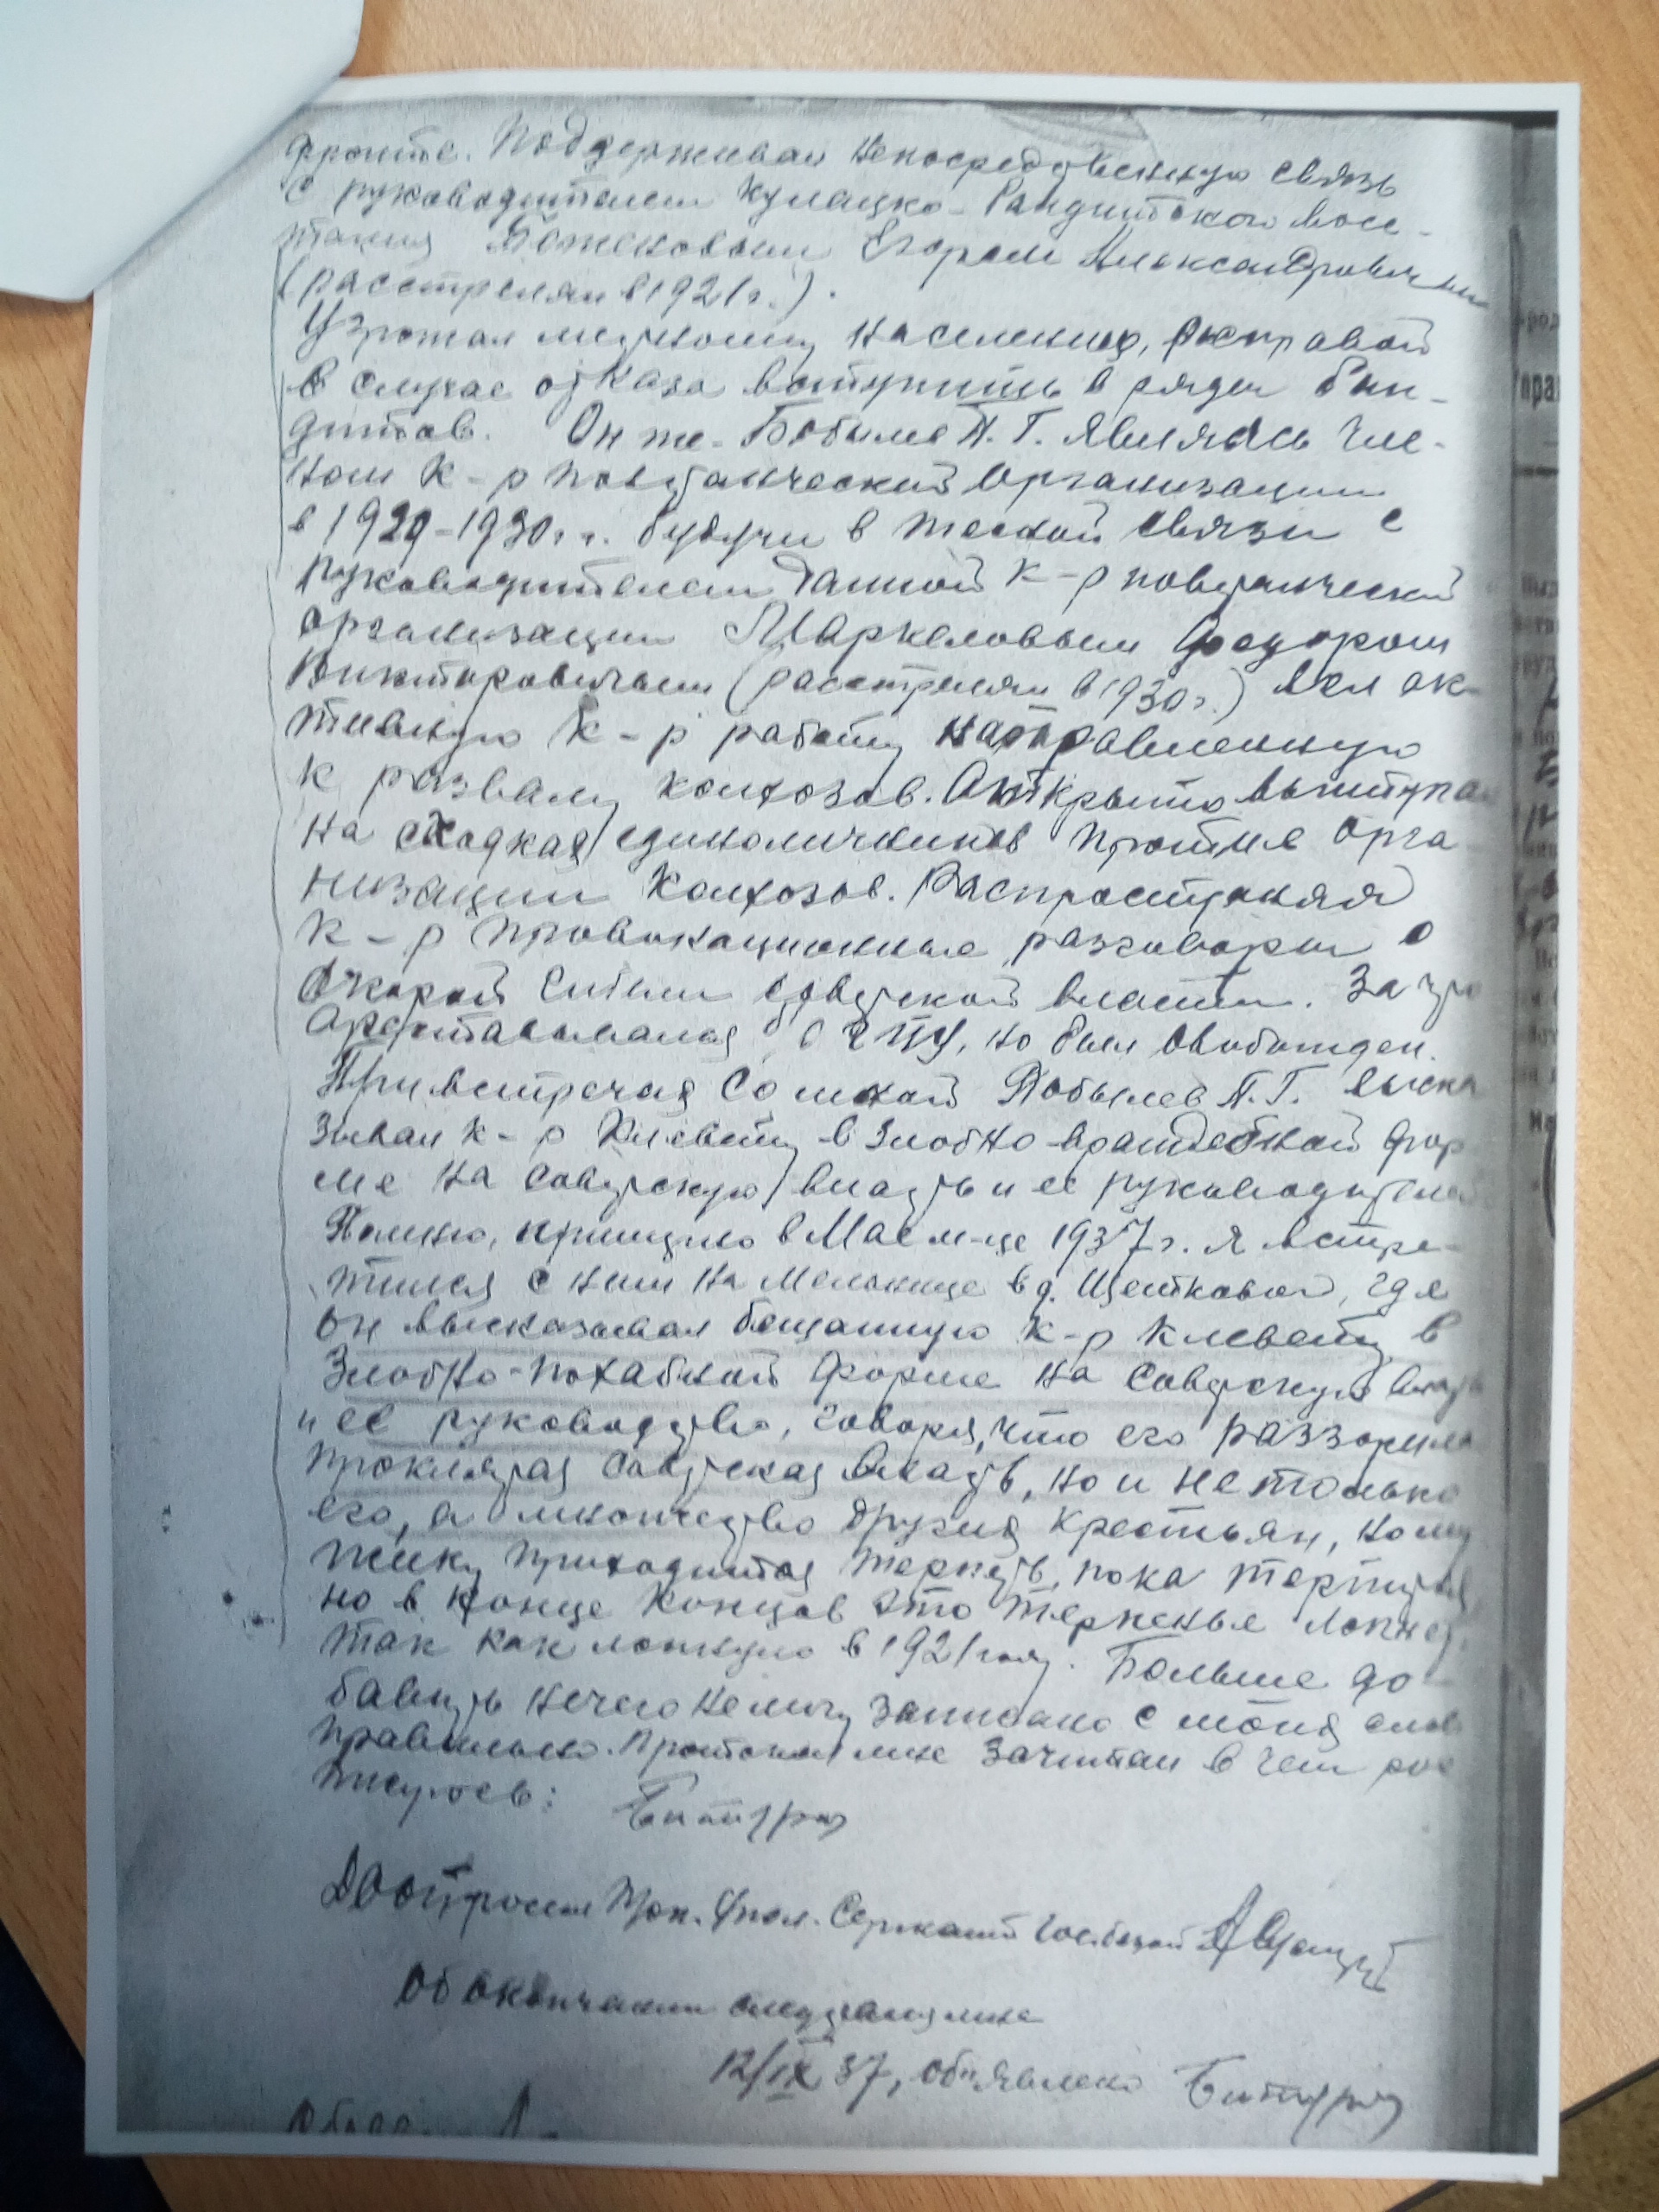 фронте. Поддерживал непосредственную связь
с руководителем Кулацко-бандитского восс-
тания Егором Александровичем
(расстрелян в 1921 г.).
Угрожал местному населению, расправой
в случае отказа вступить в ряды бан-
дитов. Он же - Бобылев П. Г. являясь чле-
ном к-р повстанческой организации
в 1929-1930 г.г. будучи в тесной связи с
руководителем данной к-р повстанческой
организации Маркеловым Федором
Викторовичем (расстрелян в 1930 г.) вел ак-
тивную к-р работу направленную
к развалу колхозов. Открыто выступал
на сходках единоличников против орга-
низации колхозов. Распространял
к-р провокационные разговоры о
скорой гибели советской власти. За что
Арестовывался ОГПУ, но был освобожден.
При встречах со мной Бобылев П. Г. выска
зывал к-р клевету в злобно-враждебной фор
ме на советскую власть и ее руководителей
Помню, примерно в Мае м-це 1937 г. я встре-
тился с ним на мельнице в д. Щетковой, где
он высказывал бешанную к-р клевету в
злобно-похабной форме на советскую власть
и ее руководство, говоря, что его раззорила
проклятая советская власть, но и не только
его, а множество других крестьян, но му
жику приходится терпеть, пока терпится
но в конце концов это терпенье лопнет,
так как лопнуло в 1921 году. Больше до-
бавить нечего не могу записано с моих слов
правильно. Протокол мне зачитан в чем рос
пишусь:
Допросил Опер. Упол. Сержант Госбезоп
Об окончании следствия мне
12/IX 37, объявлено